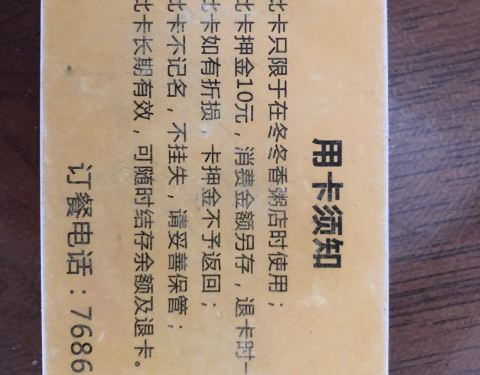 用卡须知
此卡只限于在冬冬香粥店时使用；
此卡押金10元，消费金额另存，退卡时一
此卡如有折损，卡押金不予返回；
此卡不记名，不挂失，请妥善保管；
此卡长期有效，可随时结存余额及退卡。
订餐电话：7686